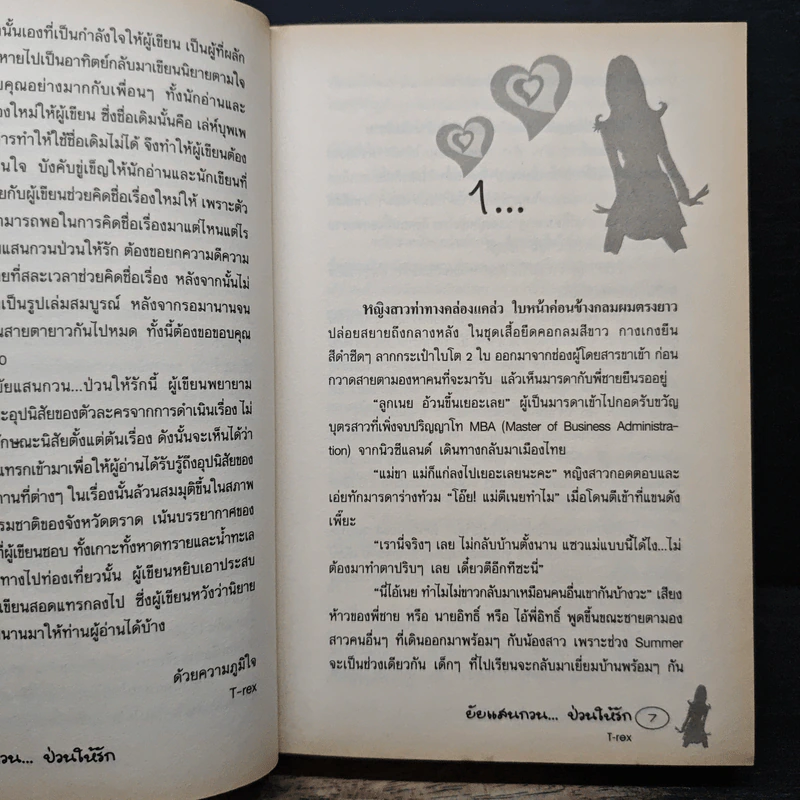 นั้นเองที่เป็นกำลังใจให้ผู้เขียน เป็นผู้ที่ผลัก
หายไปเป็นอาทิตย์กลับมาเขียนนิยายตามใจ
คุณอย่างมากกับเพื่อนๆ ทั้งนักอ่านและ
ใหม่ให้ผู้เขียน ซึ่งชื่อเดิมนั้นคือ เล่ห์บุพเพ
การทำให้ใช้ชื่อเดิมไม่ได้ จึงทำให้ผู้เขียนต้อง
บังคับขู่เข็ญให้นักอ่านและนักเขียนที่
กับผู้เขียนช่วยคิดชื่อเรื่องใหม่ให้ เพราะตัว
สามารถพอในการคิดชื่อเรื่องมาแต่ไหนแต่ไร
แสนกวนป่วนให้รัก ต้องขอยกความดีความ
ที่สละเวลาช่วยคิดชื่อเรื่อง หลังจากนั้นไม่
เป็นรูปเล่มสมบูรณ์ หลังจากรอมานานจน
สายตายาวกันไปหมด ทั้งนี้ต้องขอขอบคุณ
ยัยแสนกวน...ป่วนให้รักนี้ ผู้เขียนพยายาม
อุปนิสัยของตัวละครจากการดำเนินเรื่อง ไม่
ลักษณะนิสัยตั้งแต่ต้นเรื่อง ดังนั้นจะเห็นได้ว่า
แทรกเข้ามาเพื่อให้ผู้อ่านได้รับรู้ถึงอุปนิสัยของ
สถานที่ต่างๆ ในเรื่องนั้นล้วนสมมุติขึ้นในสภาพ
ธรรมชาติของจังหวัดตราด เน้นบรรยากาศของ
ที่ผู้เขียนชอบ ทั้งเกาะทั้งหาดทรายและน้ำทะเล
ทางไปท่องเที่ยวนั้น ผู้เขียนหยิบเอาประสบ
เขียนสอดแทรกลงไป ซึ่งผู้เขียนหวังว่านิยาย
นานมาให้ท่านผู้อ่านได้บ้าง
ด้วยความภูมิใจ
T-rex
ป่วนให้รัก
1...
หญิงสาวท่าทางคล่องแคล่ว ใบหน้าค่อนข้างกลมผมตรงยาว
ปล่อยสยายถึงกลางหลัง ในชุดเสื้อยืดคอกลมสีขาว กางเกงยีน
สีดำซีดๆ ลากกระเป๋าใบโต 2 ใบ ออกมาจากช่องผู้โดยสารขาเข้า ก่อน
กวาดสายตามองหาคนที่จะมารับ แล้วเห็นมารดากับพี่ชายยืนรออยู่
“ลูกเนย อ้วนขึ้นเยอะเลย” ผู้เป็นมารดาเข้าไปกอดรับขวัญ
บุตรสาวที่เพิ่งจบปริญญาโท MBA (Master of Business Administra-
tion) จากนิวซีแลนด์ เดินทางกลับมาเมืองไทย
“แม่ขา แม่ก็แก่ลงไปเยอะเลยนะคะ” หญิงสาวกอดตอบและ
เอ่ยทักมารดาร่างท้วม “โอ๊ย! แม่ตีเนยทำไม” เมื่อโดนตีเข้าที่แขนดัง
เพี๊ยะ
“เรานี่จริงๆ เลย ไม่กลับบ้านตั้งนาน แซวแม่แบบนี้ได้ไง...ไม่
ต้องมาทำตาปริบๆ เลย เดี๋ยวตีอีกทีซะนี่”
“นี่ไอ้เนย ทำไมไม่ขาวกลับมาเหมือนคนอื่นเขากันบ้างวะ” เสียง
ห้าวของพี่ชาย หรือ นายอิทธิ์ หรือ ไอ้พี่อิทธิ์ พูดขึ้นขณะชายตามอง
สาวคนอื่นๆ ที่เดินออกมาพร้อมๆ กับน้องสาว เพราะช่วง Summer
จะเป็นช่วงเดียวกัน เด็กๆ ที่ไปเรียนจะกลับมาเยี่ยมบ้านพร้อมๆ กัน
ยัยแสนกวน... ป่วนให้รัก 7
T-rex